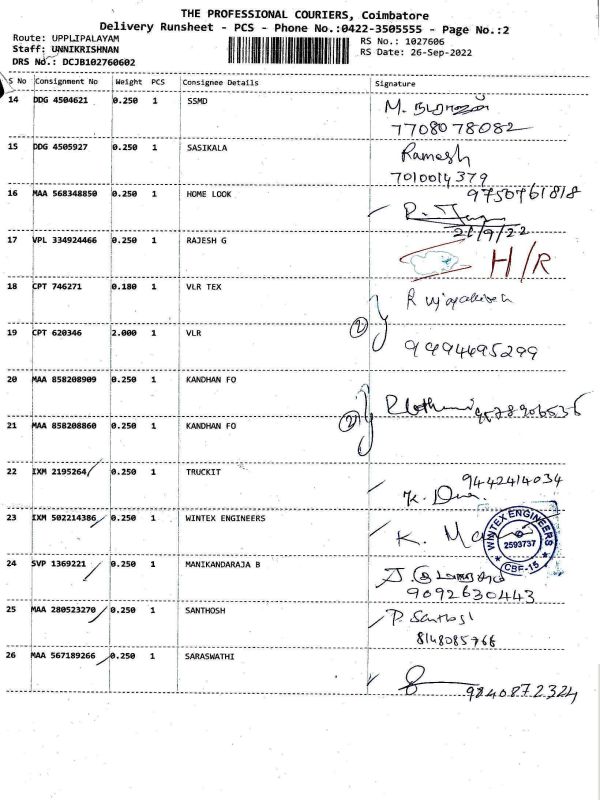 THE PROFESSIONAL COURIERS, Coimbatore
Delivery Runsheet - PCS - Phone No.:0422-3505555 - Page No.:2
Route: UPPLIPALAYAM
RS No.: 1027606
Staff: UNNIKRISHNAN
RS Date: 26-Sep-2022
DRS No.: DCJB102760602
S No Consignment No Weight PCS Consignee Details Signature
14 DDG 4504621 0.250 1 SSMD M.
7708078082
15 DDG 4505927 0.250 1 SASIKALA Ramesh
7010014379
16 MAA 568348850 0.250 1 HOME LOOK 9750761818
R.
26/9/22
17 VPL 334924466 0.250 1 RAJESH G H/R
18 CPT 746271 0.180 1 VLR TEX R
(2)
19 CPT 620346 2.000 1 VLR 9994695299
20 MAA 858208909 0.250 1 KANDHAN FO
(2)
21 MAA 858208860 0.250 1 KANDHAN FO
22 IXM 2195264 0.250 1 TRUCKIT 9442414034
K.
23 IXM 502214386 0.250 1 WINTEX ENGINEERS K.
WINTEX ENGINEERS
2593737
CBE-15
24 SVP 1369221 0.250 1 MANIKANDARAJA B J.
9092630443
25 MAA 280523270 0.250 1 SANTHOSH P. Santhosh
8148085766
26 MAA 567189266 0.250 1 SARASWATHI
9840872324